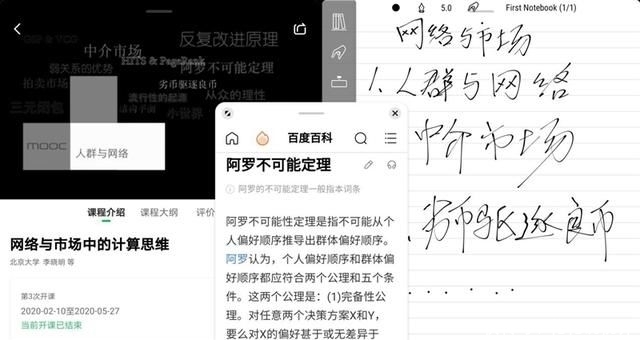 GSP & VCG
中介市场
反复改进原理
弱关系的优势
HITS & PageRank
阿罗不可能定理
拍卖市场
劣币驱逐良币
从众的理性
三元闭包
流行性的起源
小世界
mooc
人群与网络
课程介绍
课程大纲
评价
网络与市场中的计算思维
北京大学 李晓明 等
第3次开课
2020-02-10至2020-05-27
当前开课已结束
百度百科
阿罗不可能定理
阿罗的不可能定理一般指本词条
阿罗不可能性定理是指不可能从个
人偏好顺序推导出群体偏好顺序。
阿罗认为，个人偏好顺序和群体偏
好顺序都应符合两个公理和五个条
件。这两个公理是：(1)完备性公
理。对任意两个决策方案X和Y，
要么对X的偏好甚于或无差异于
5.0
First Notebook (1/1)
网络与市场
1.人群与网络
中介市场
劣币驱逐良币
. . . . . .